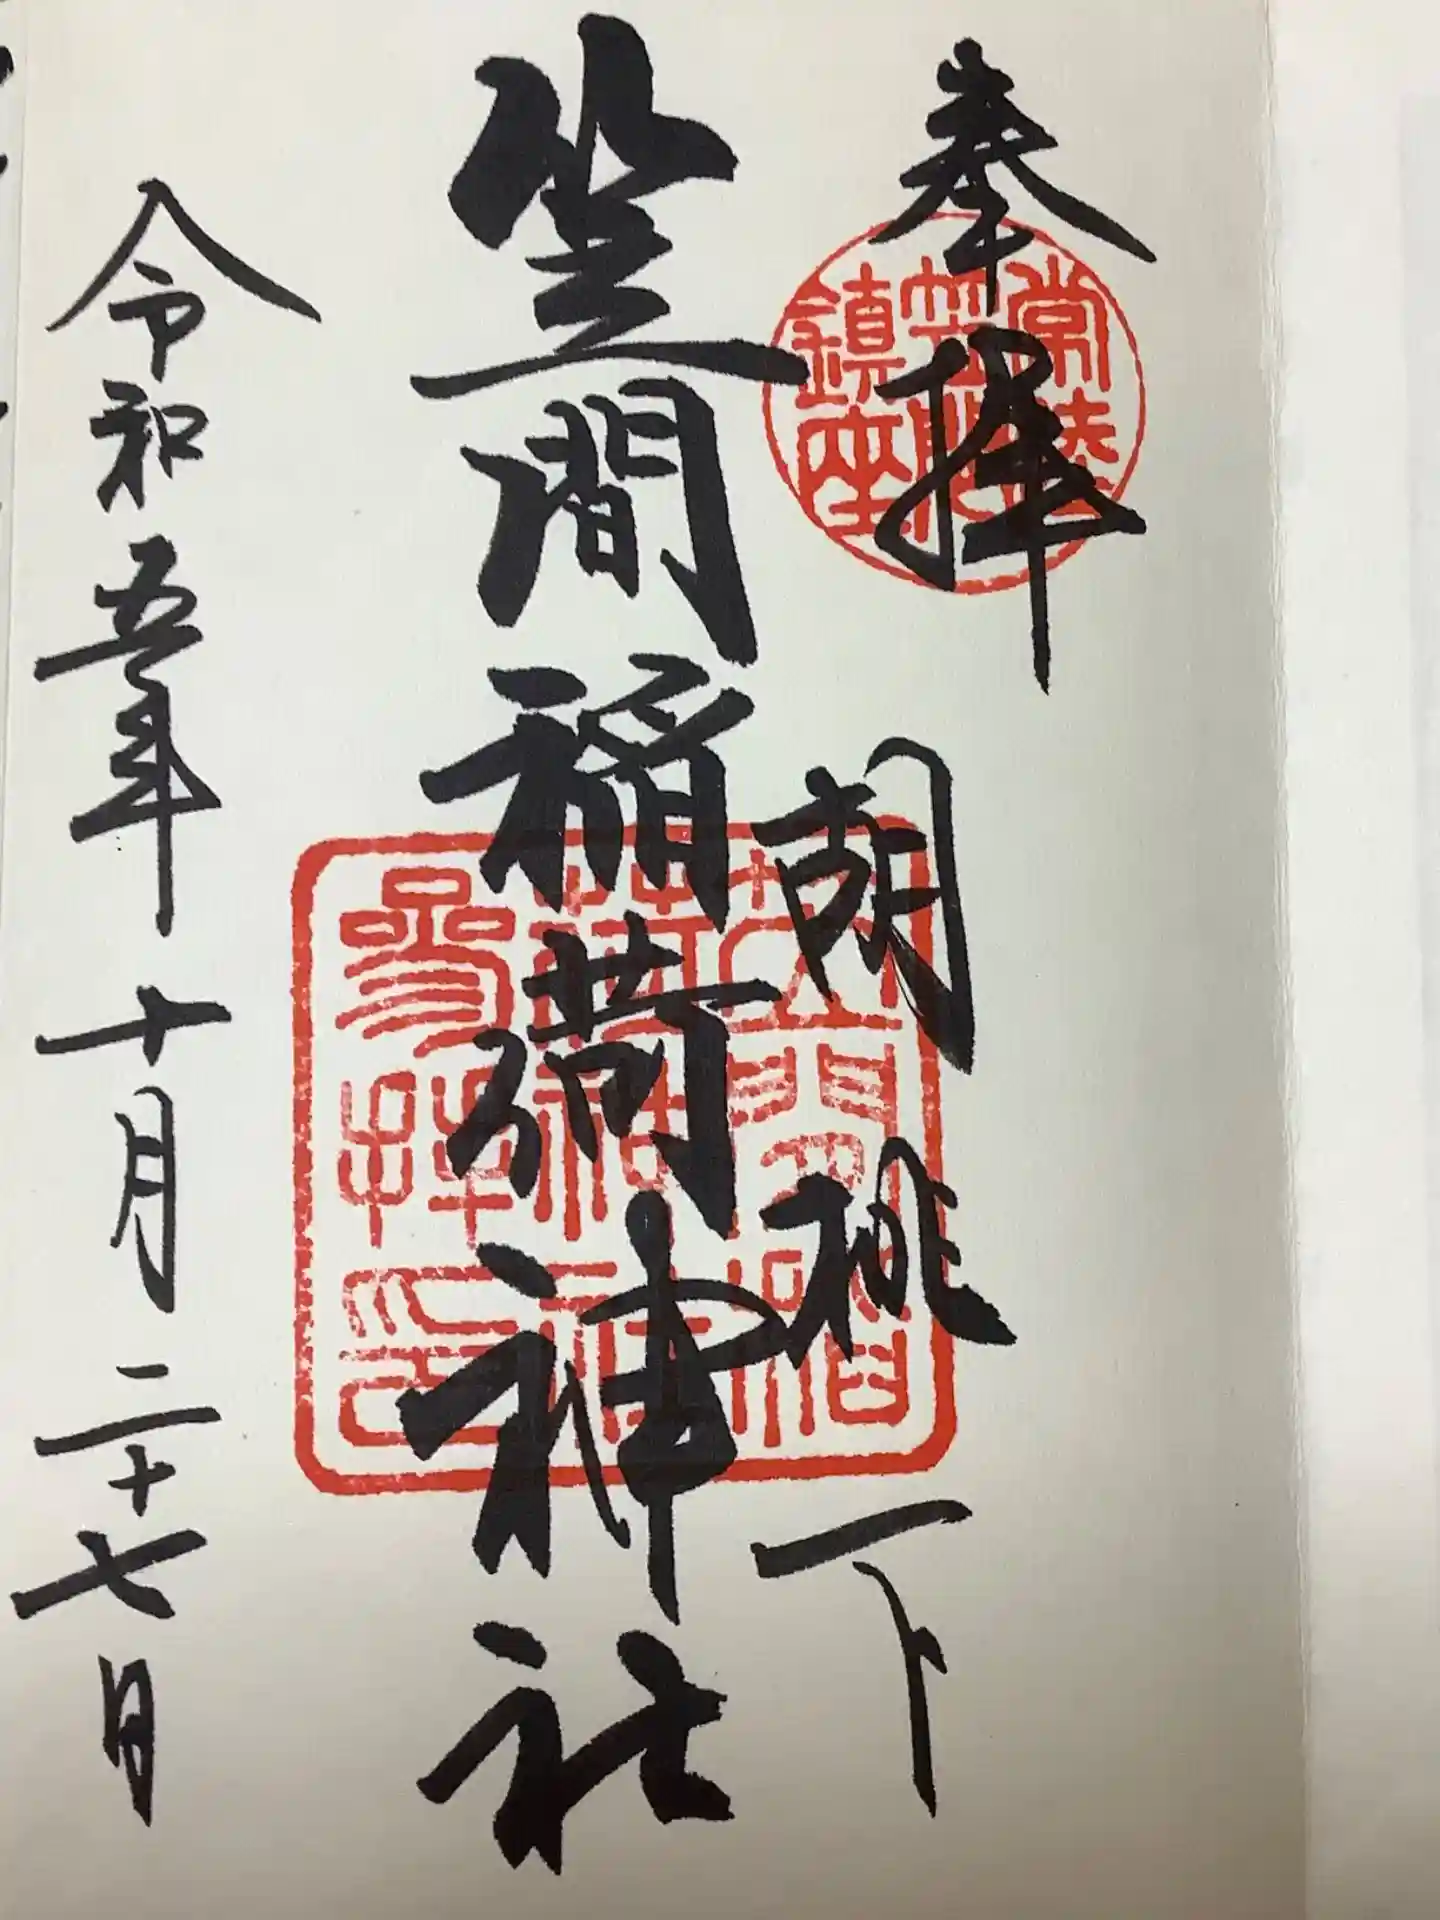 奉拝
常陸
笠間
鎮座
胡桃下
笠間稲荷神社
笠間稲
荷神社
参拝印
令和五年十月二十七日